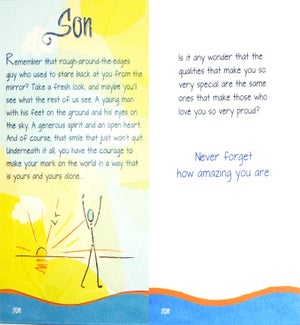 Son
Remember that rough-around-the-edges
guy who used to stare back at you from the
mirror? Take a fresh look, and maybe you'll
see what the rest of us see. A young man
with his feet on the ground and his eyes on
the sky. A generous spirit and an open heart.
And of course, that smile that just won't quit.
Underneath it all, you have the courage to
make your mark on the world in a way that
is yours and yours alone...
son
Is it any wonder that the
qualities that make you so
very special are the same
ones that make those who
love you so very proud?
Never forget
how amazing you are
son